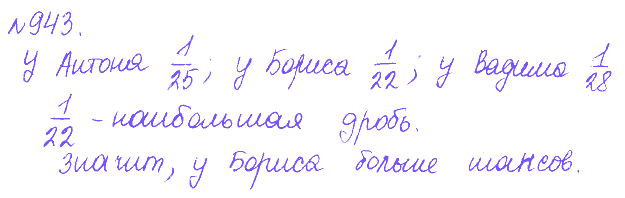 №943.
У Антона 1/25; у Бориса 1/22; у Вадима 1/28
1/22 - наибольшая дробь.
Значит, у Бориса больше шансов.